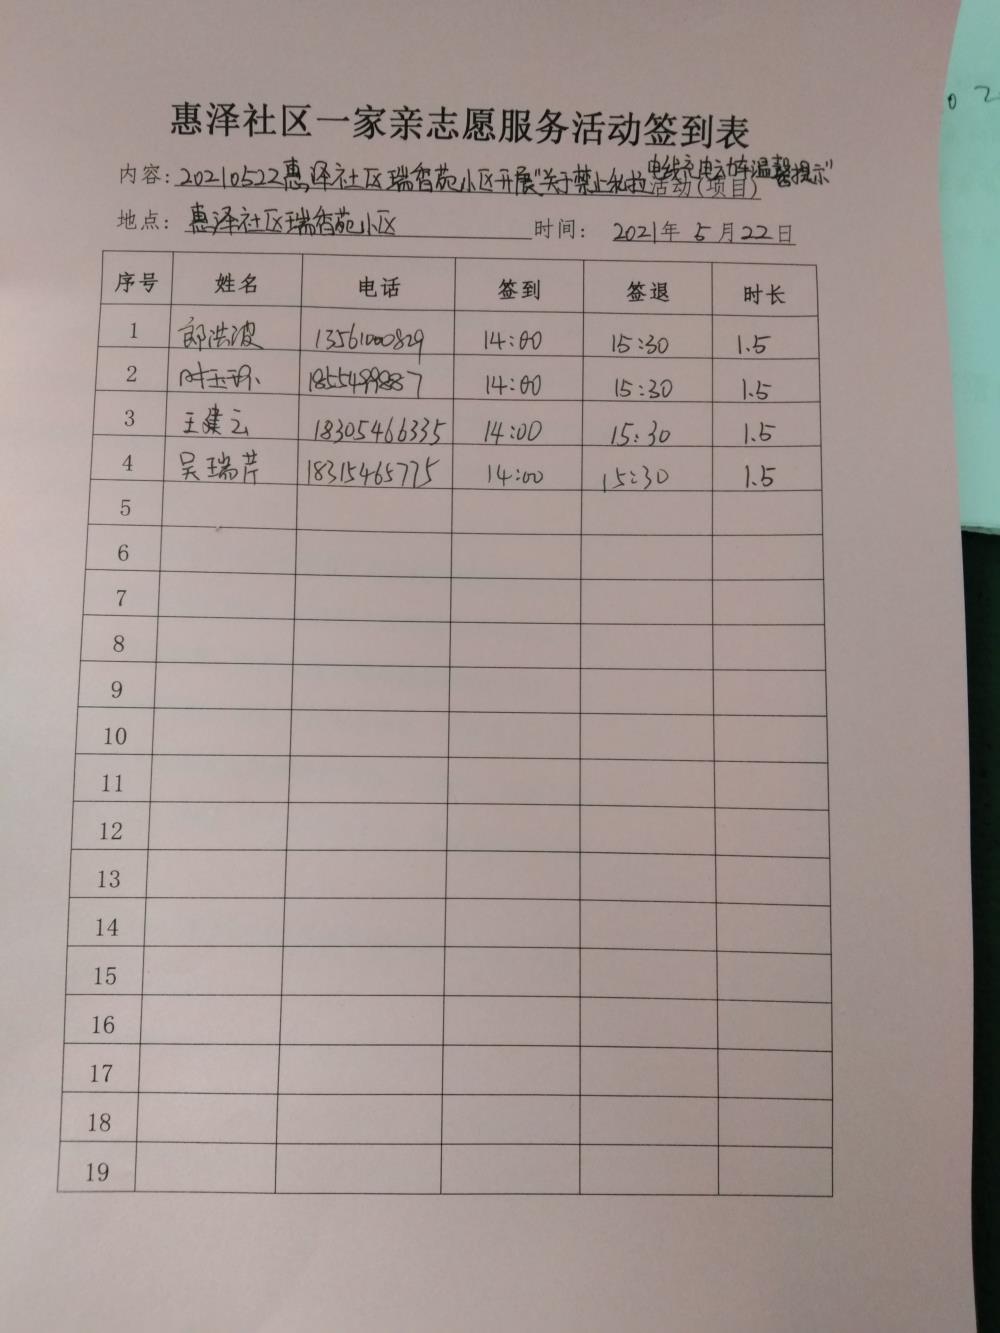 惠泽社区一家亲志愿服务活动签到表
内容：20210522惠泽社区瑞香苑小区开展"关于禁止私拉电线充电动车温馨提示"活动(项目)
地点：惠泽社区瑞香苑小区 时间：2021年5月22日
序号 姓名 电话 签到 签退 时长
1 郎洪波 13561000829 14:00 15:30 1.5
2 18554899887 14:00 15:30 1.5
3 王建云 18305466335 14:00 15:30 1.5
4 吴瑞芹 18315465775 14:00 15:30 1.5
5
6
7
8
9
10
11
12
13
14
15
16
17
18
19